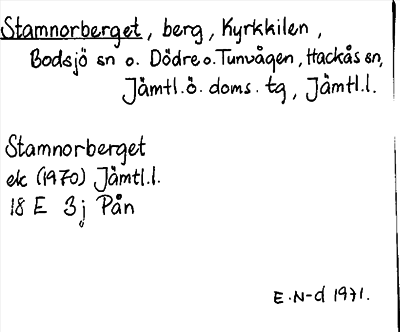 Stamnorberget, berg, Kyrkkilen,
Bodsjö sn o. Dödre o. Tunvågen, Hackås sn,
Jämtl.ö. doms. tg, Jämtl.l.
Stamnorberget
ek (1970) Jämtl.l.
18 E 3j Pån
E.N-d 1971.